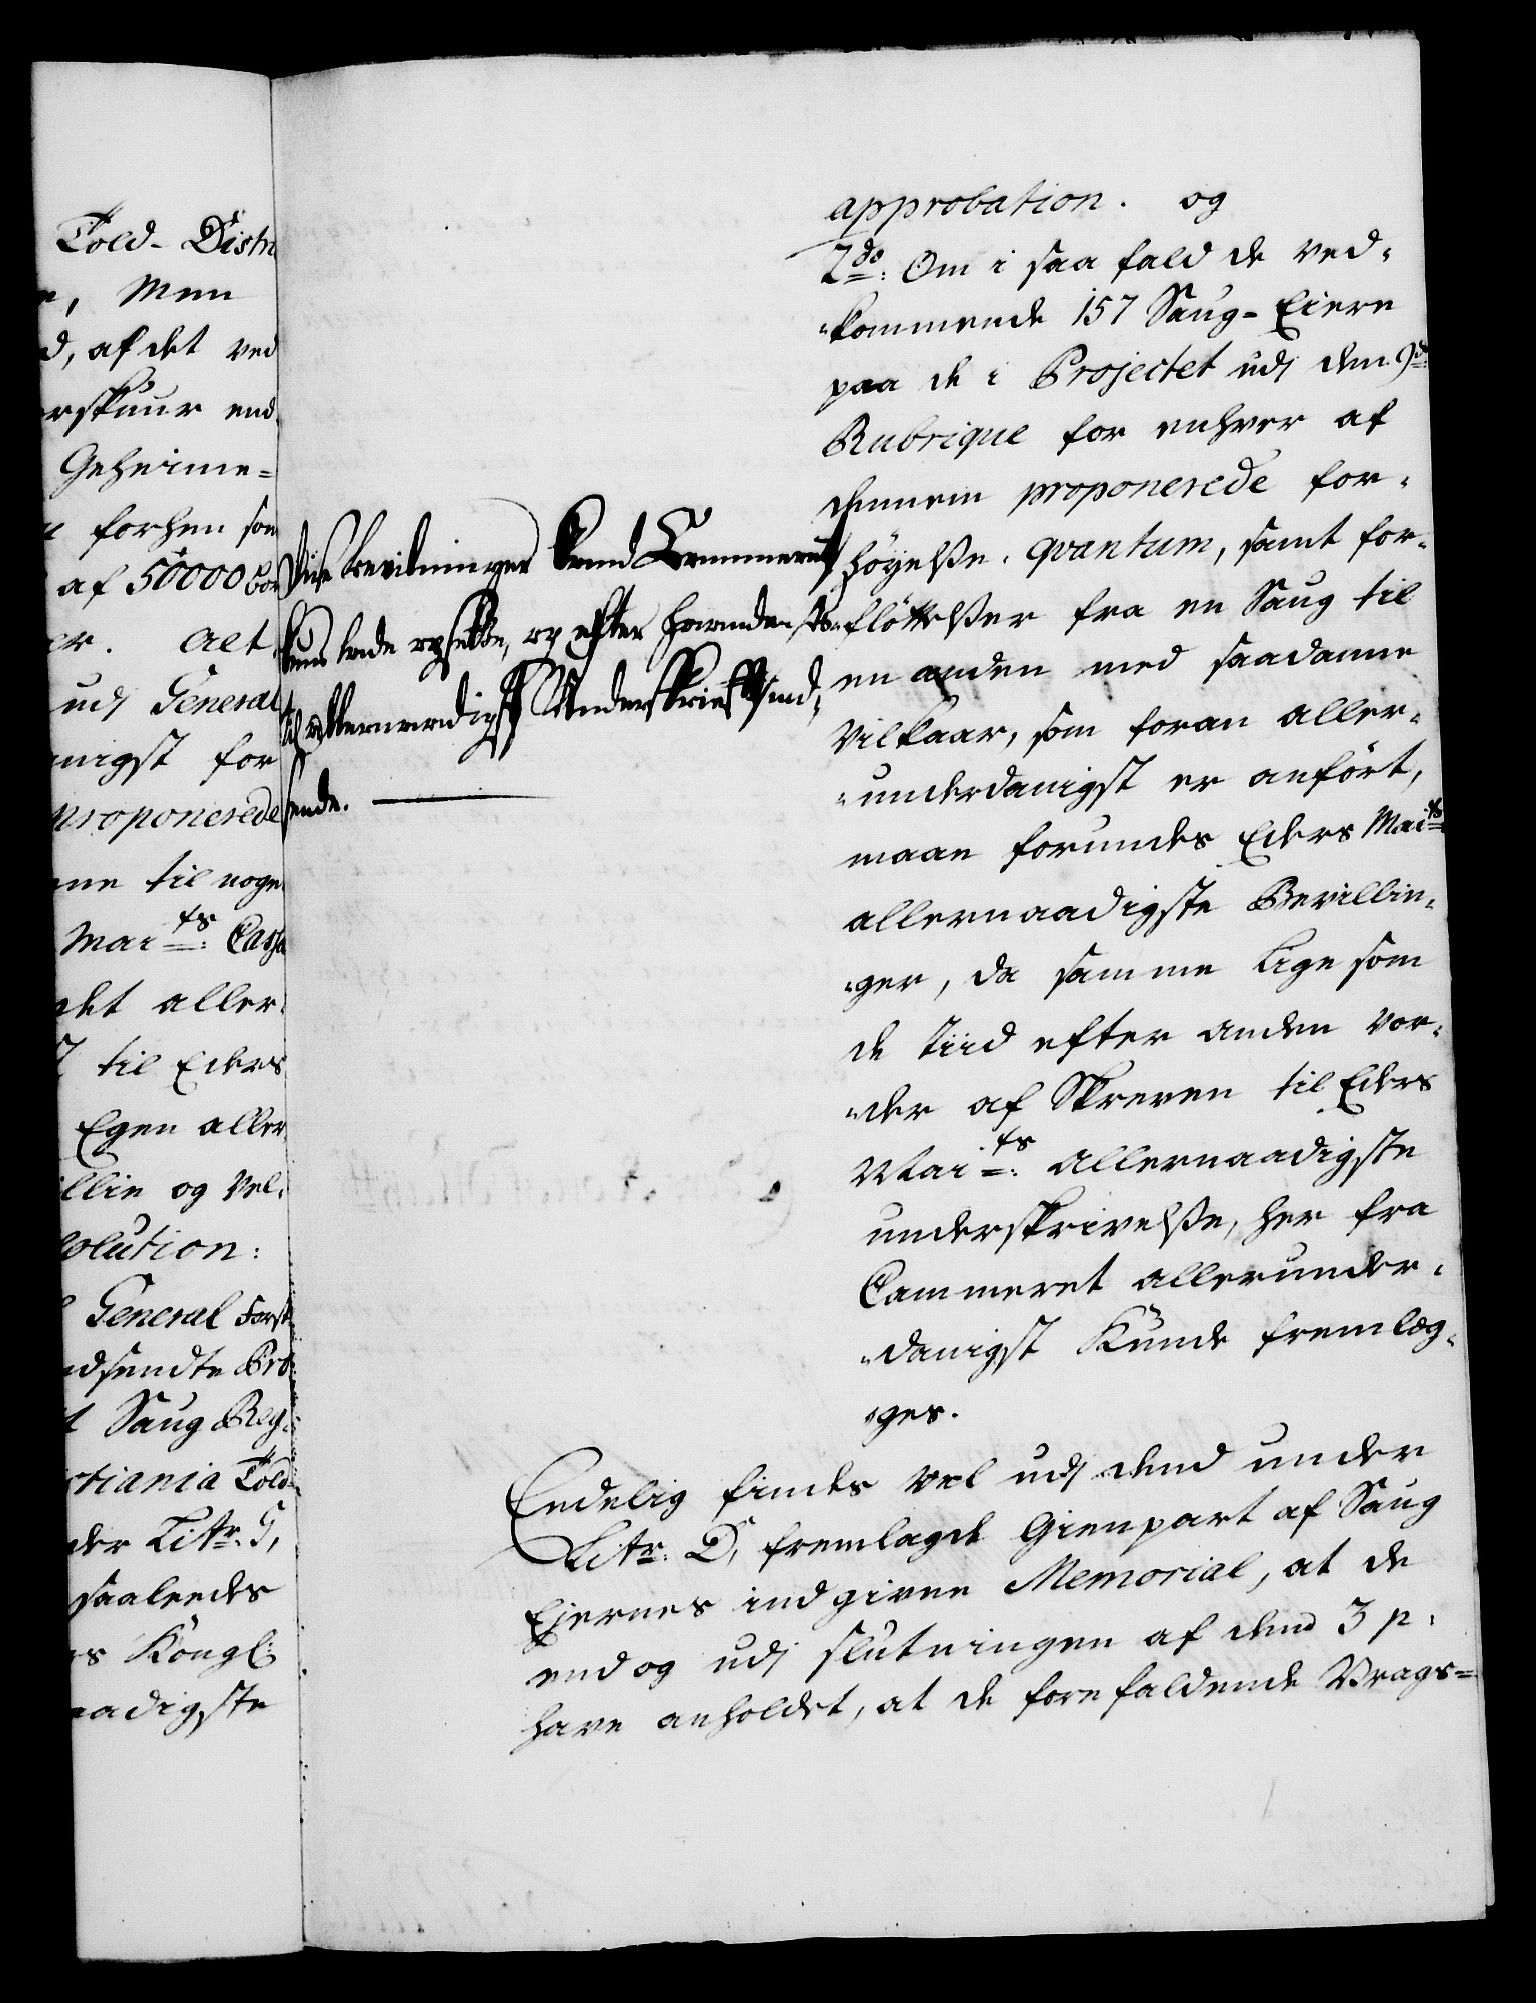 Told- Distri
, Men
d, af det ved
rskuur end
Geheime=
forhen som
af 50000 bor
er. Alt
udj General
nigst for
proponerede
ne til noge
Mai^ts: Cassa
det aller
til Eders
Egen aller
llie og Vel.
olution:
General Forst
dsendte Pro
t Saug Reg.
stiania Told
der Litr: G,
saaledes
s Kongl:
aadigste
Disse bevilninger kand Cammeret
lade opsette, og efter haanden
til allernaadigst Underskrifft ind,
sende.
approbation. og
2^do: Om i saa fald de ved-
-kommende 157 Saug-Eiere
paa de i Projectet udj den 9^de
Rubrique for enhver af
dennem proponerede for-
höyelße. qvantum, samt for-
fløttelßer fra en Saug til
en anden med saadanne
Vilkaar, som foran aller-
-underdanigst er anført,
maae forundes Eders Mai^ts
allernaadigste Bevillin-
-ger, da samme lige som
de Tiid efter anden vor-
-der af Skreven til Eders
Mai^ts: allernaadigste
underskrivelße, her fra
Cammeret allerunder-
-danigst Kunde fremlæg-
-ges.
Endelig findes vel udj dend under
Litr: D, fremlagde Gienpart af Saug
Ejernes indgivne Memorial, at de
endog udj slutningen af dend 3 p.
have anholdet, at de forefaldende Vrags=